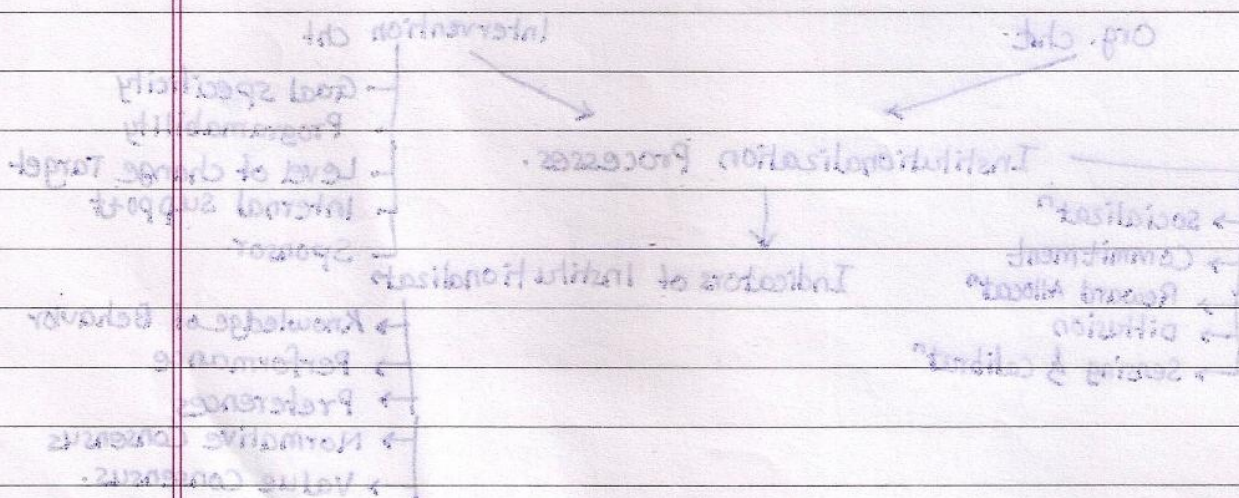 Org. cht:
Intervention cht
- Goal specificity
- Programability
- Level of change Target
- Internal Support
- Sponsor
Institutionalization Processes.
→ socializatⁿ
→ Commitment
→ Reward Allocatⁿ
→ Diffusion
→ Sensing & Calibratⁿ
Indicators of Institutionalizatⁿ
→ Knowledge of Behavior
→ Performance
→ Preferences
→ Normative Consensus
→ Value Consensus.